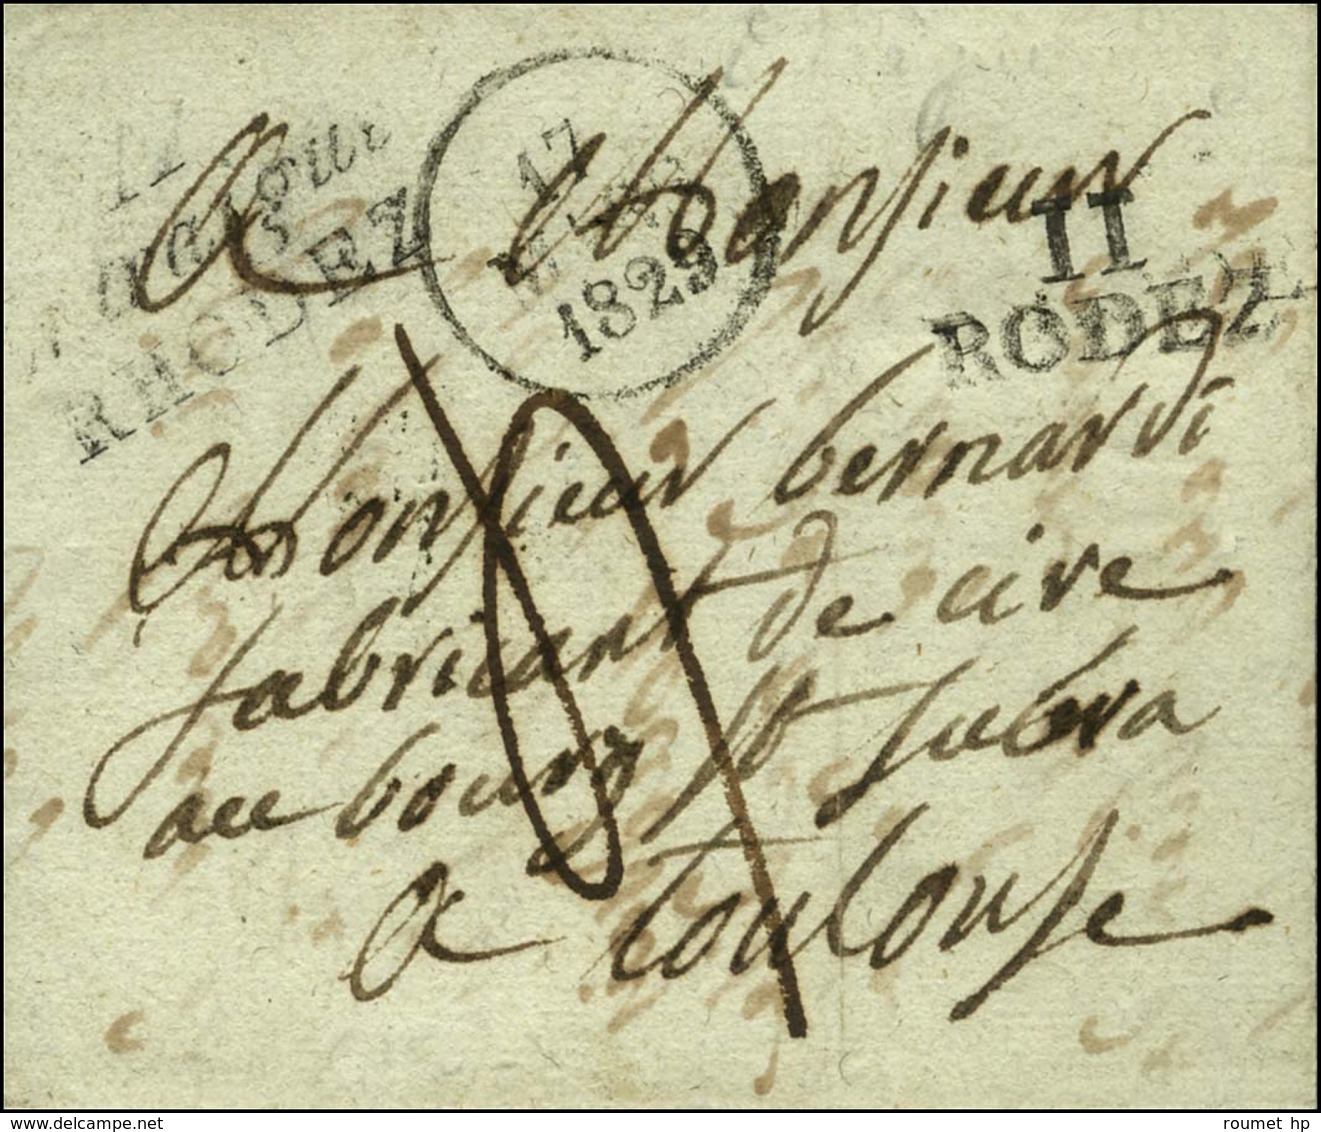 11
RHODEZ
17
MARS
1829
11
RODEZ
a Monsieur
Monsieur bernardi
fabricant de cire
au bourg st subra
a toulouse
roumet hp